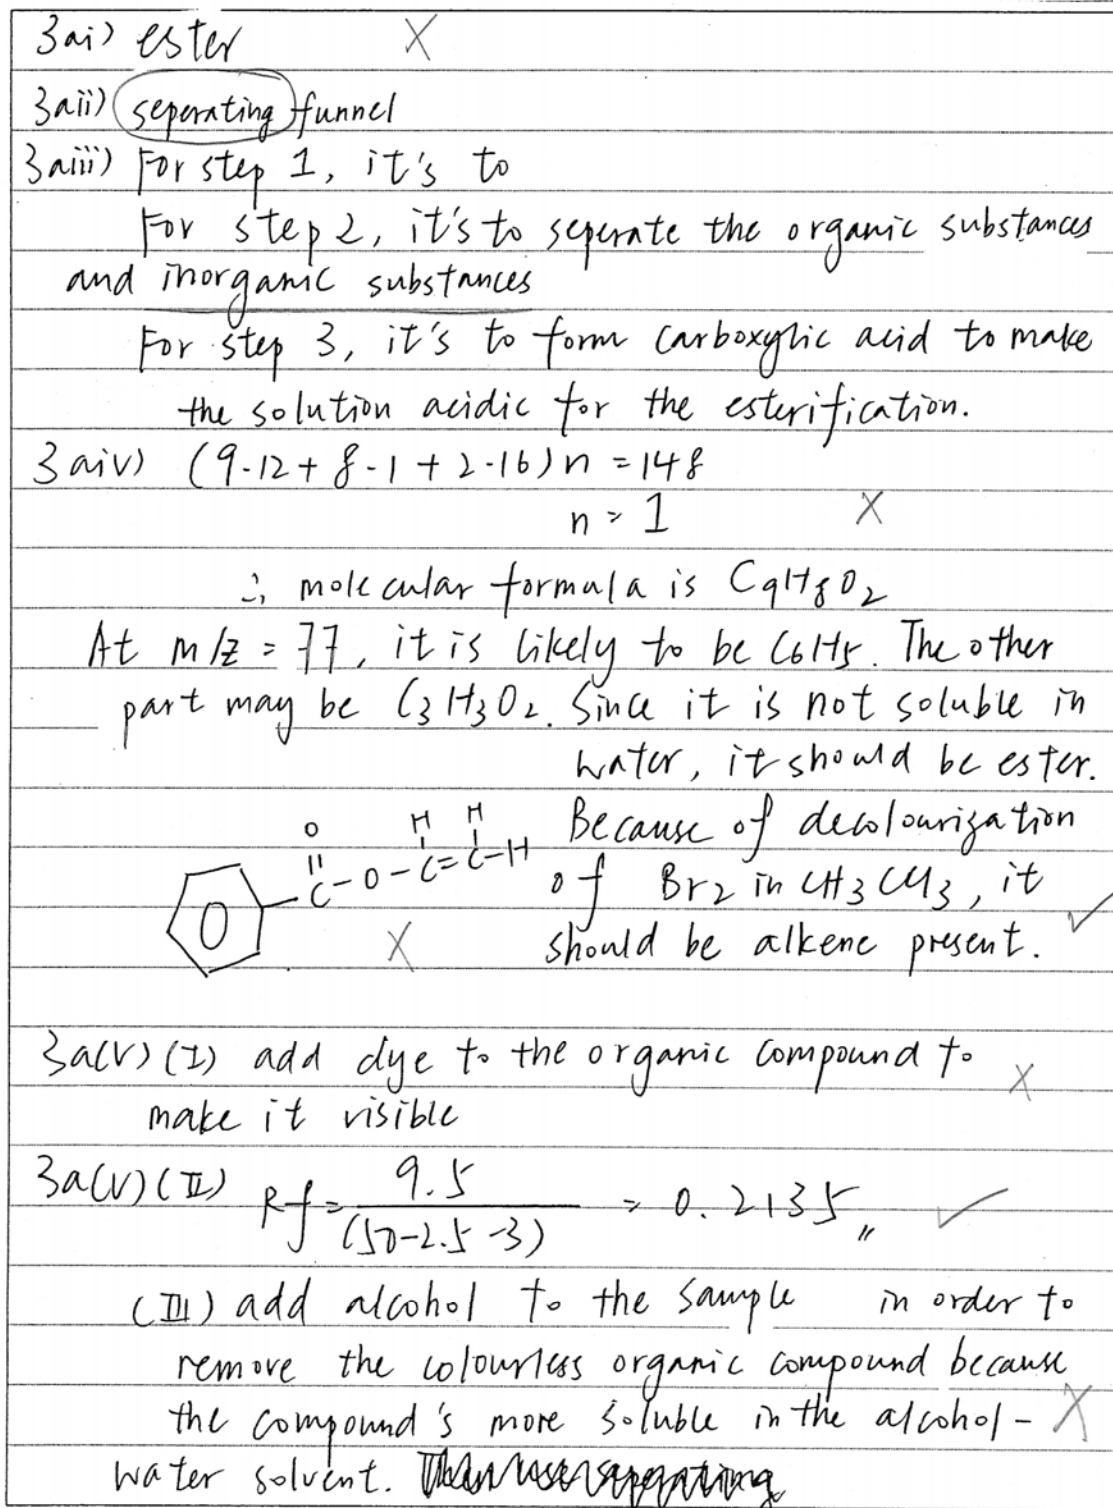 3ai) ester
3aii) seperating funnel
3aiii) For step 1, it's to
For step 2, it's to seperate the organic substances
and inorganic substances
For step 3, it's to form carboxylic acid to make
the solution acidic for the esterification.
3aiv) (9·12 + 8·1 + 2·16)n = 148
n = 1
∴ molecular formula is C9H8O2
At m/z = 77, it is likely to be C6H5. The other
part may be C3H3O2. Since it is not soluble in
water, it should be ester.
O H H Because of decolourization
C-O-C=C-H of Br2 in CH3CCl3, it
should be alkene present.
3a(V)(I) add dye to the organic compound to
make it visible
3a(V)(II) Rf = 9.5/(50-2.5-3) = 0.2135
(III) add alcohol to the sample in order to
remove the colourless organic compound because
the compound's more soluble in the alcohol-
water solvent.